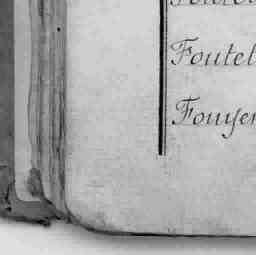 Foutel
Fouyer